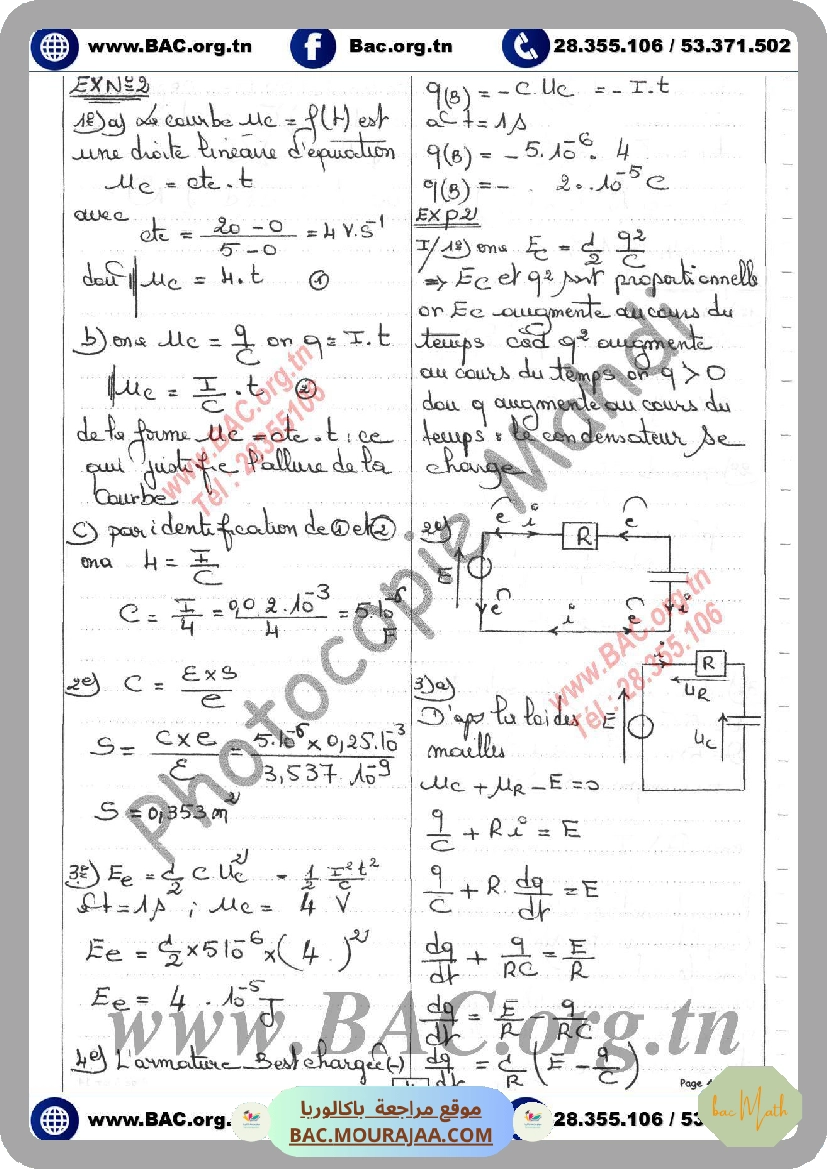 www.BAC.org.tn Bac.org.tn 28.355.106 / 53.371.502
EXN°2
1°) a) Le courbe uc = f(t) est
une droite linéaire d'équation
uc = cte . t
avec
cte = (20 - 0) / (5 - 0) = 4 V.s⁻¹
d'où uc = 4.t ①
b) on a uc = q/C or q = I.t
uc = I/C . t ②
de la forme uc = cte . t : ce
qui justifie l'allure de la
Courbe
c) par identification de ① et ②
ona 4 = I/C
C = I/4 = 0,02.10⁻³/4 = 5.10⁻⁶ F
2°) C = (ε x S) / e
S = (C x e) / ε = (5.10⁻⁶ x 0,25.10⁻³) / (3,537.10⁻⁹)
S = 0,353 m²
3°) Ee = 1/2 C.Uc² = 1/2 I²t²/C
à t = 1s ; uc = 4 V
Ee = 1/2 x 5 10⁻⁶ x (4 )²
Ee = 4 . 10⁻⁵ J
4°) L'armature B est chargée (-)
q(B) = - C.Uc = - I.t
à t = 1s
q(B) = - 5.10⁻⁶ . 4
q(B) = - 2. .10⁻⁵ C
EXP2
I/ 1°) ona Ec = 1/2 q²/C
⇒ Ec et q² sont proportionnelle
or Ec augmente au cours du
temps càd q² augmente
au cours du temps or q > 0
dou q augmente au cours du
temps : le condensateur se
charge
2°) e i R e
E
e i e i
3) a) i R
D'aps la loi des E uR
mailles uc
uc + uR - E = 0
q/C + R i = E
q/C + R . dq/dt = E
dq/dt + q/RC = E/R
dq/dt = E/R - q/RC
dq/dt = 1/R (E - q/C)
Page
www.BAC.org.tn
Tél : 28.355.106
www.BAC.org.tn
Tél : 28.355.106
Photocopie Mandi
www.BAC.org.tn
www.BAC.org. 28.355.106 / 53
موقع مراجعة باكالوريا
BAC.MOURAJAA.COM
bac Math